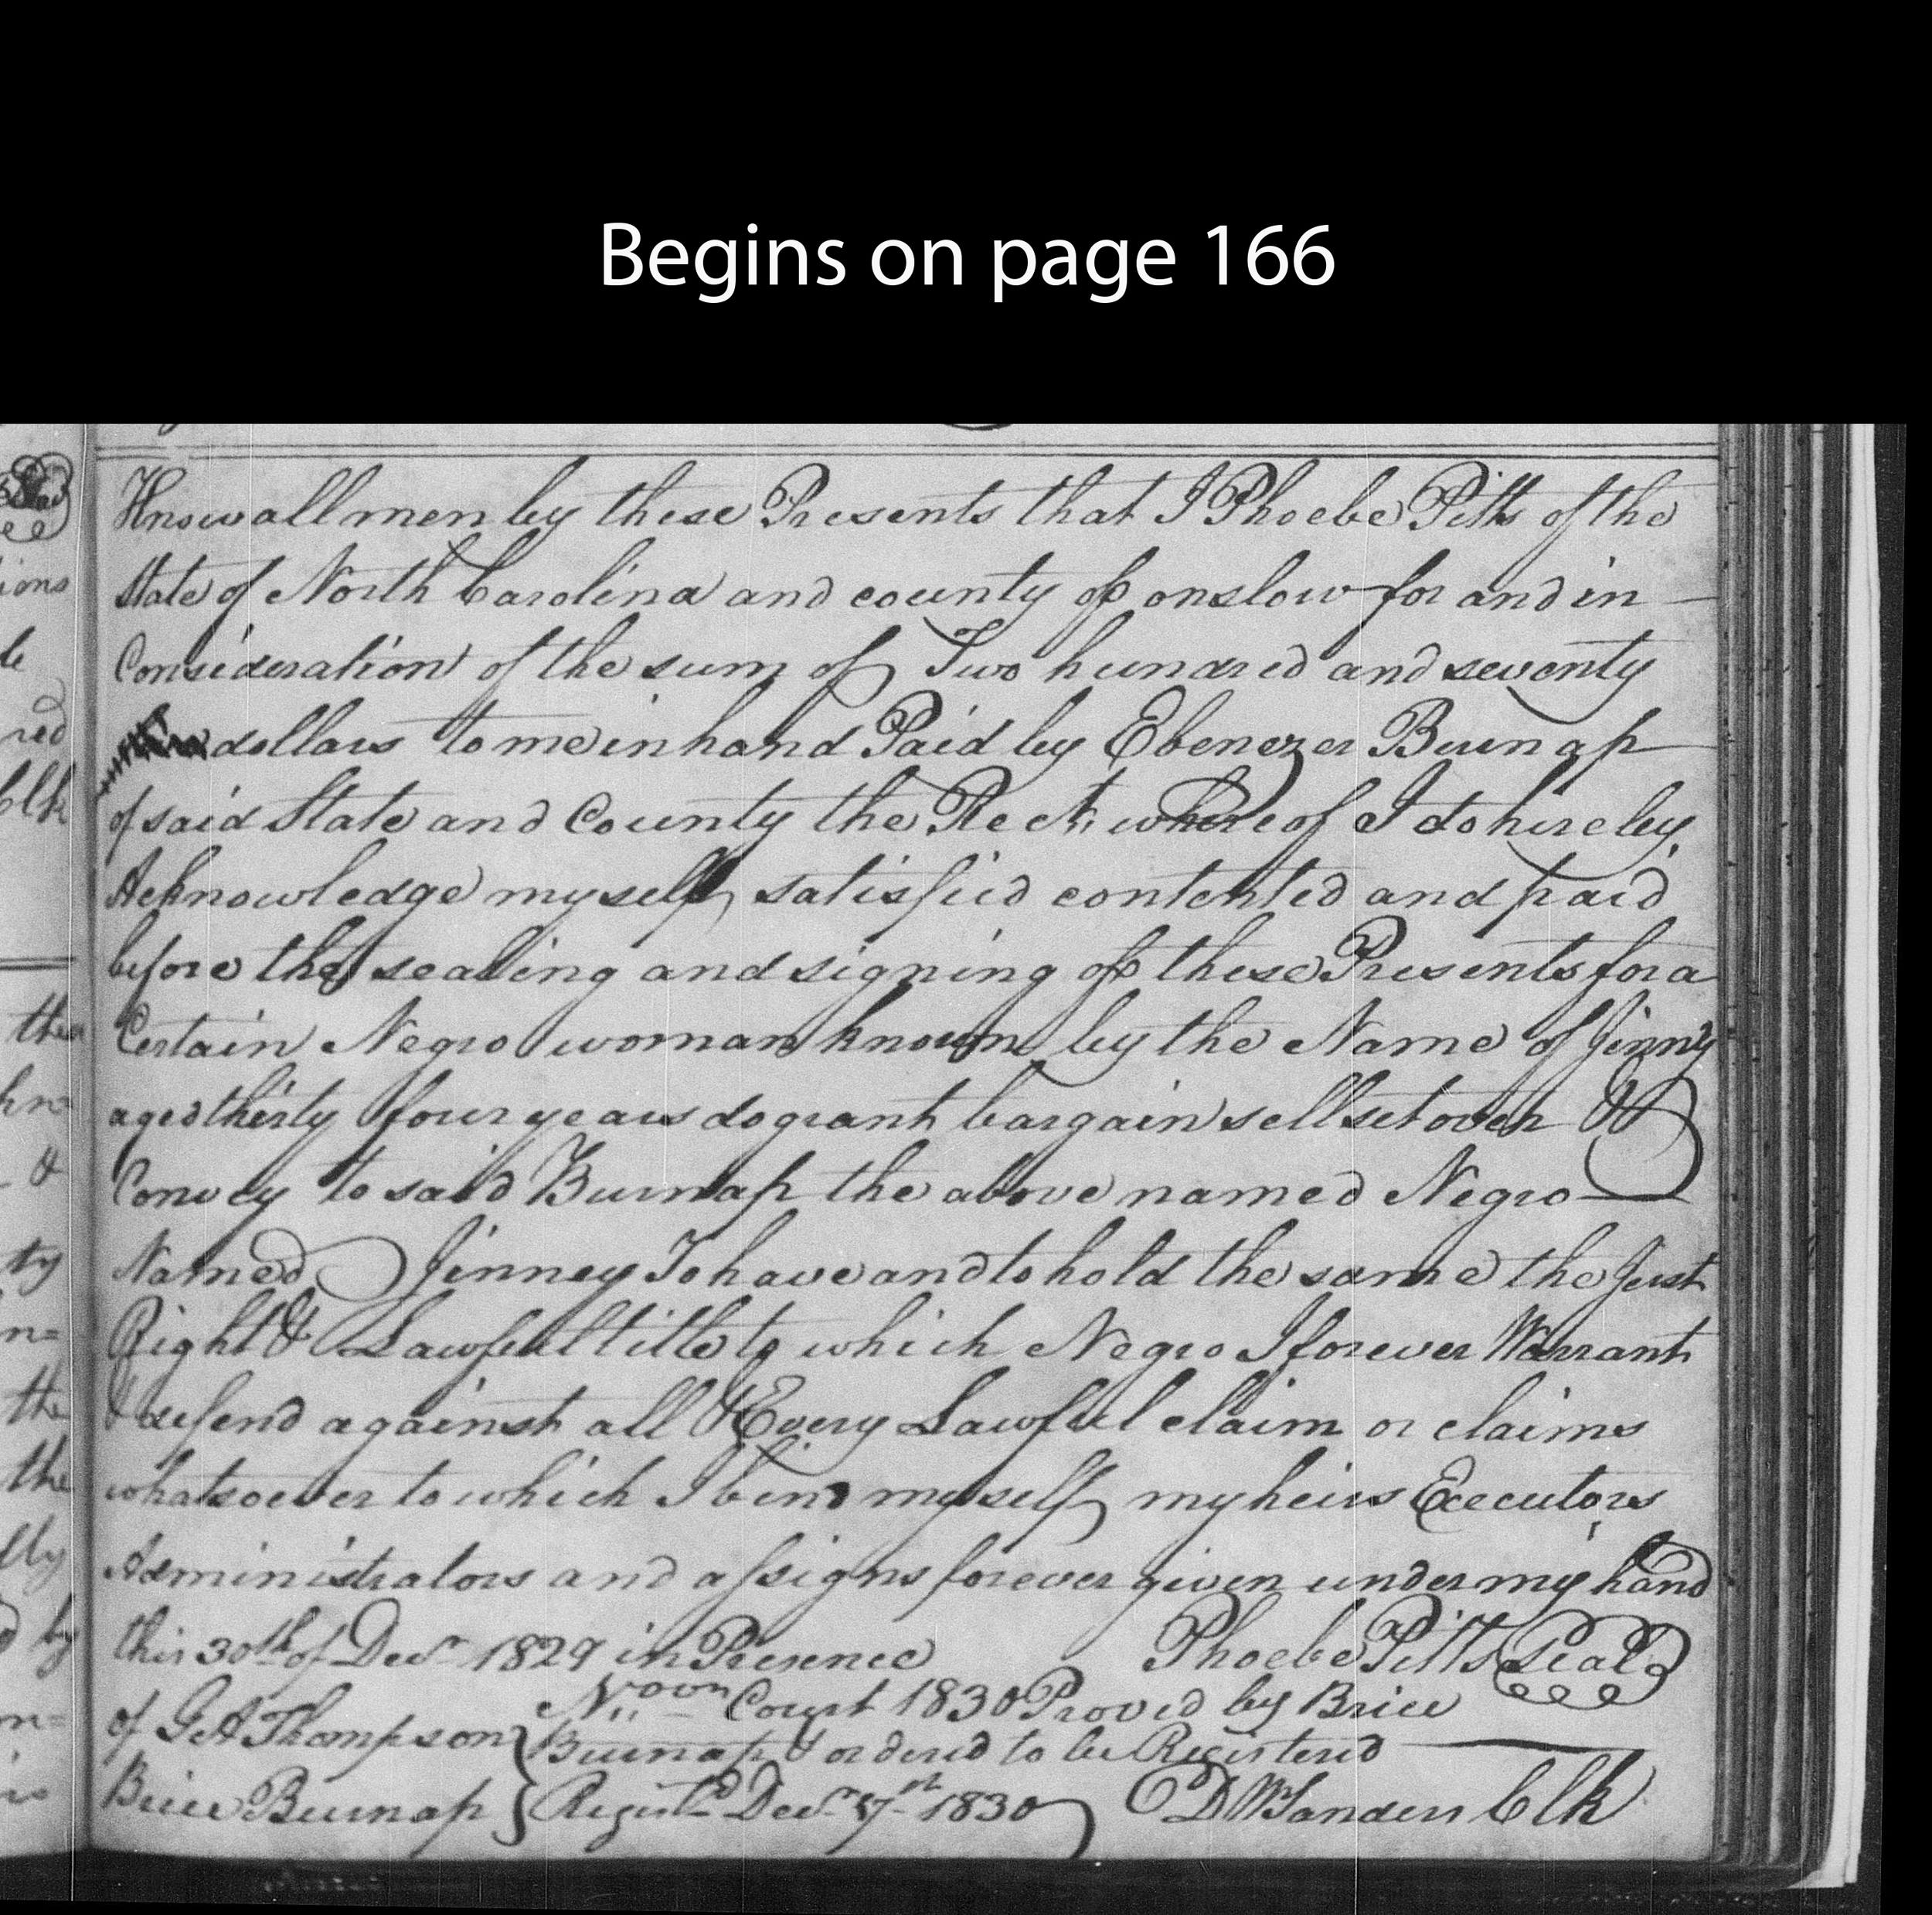 Begins on page 166
Know all men by these Presents that I Phoebe Pitts of the
State of North Carolina and county of onslow for and in
Consideration of the sum of Two hundred and seventy
dollars to me in hand Paid by Ebenezer Burnap
of said State and County the Rect. whereof I do hereby
Acknowledge myself satisfied contented and paid
before the sealing and signing of these Presents for a
Certain Negro woman known by the Name of Jinny
aged thirty four years do grant bargain sell set over &
Convey to said Burnap the above named Negro
Named Jinney To have and to hold the same the Just
Right & Lawfull title to which Negro I forever Warrant
& defend against all & Every Lawful claim or claims
whatsoever to which I bind myself my heirs Executors
Administrators and assigns forever given under my hand
this 30th of Decr 1829 in Presence Phoebe Pitts Seal
Court 1830 Proved by Brice
of G A Thompson } Burnap & ordered to be Registered
Brice Burnap } Registd Decr 1830 D W Sanders Clk
ions
le
red
Clk
the
&
ty
n=
the
the
lly
by